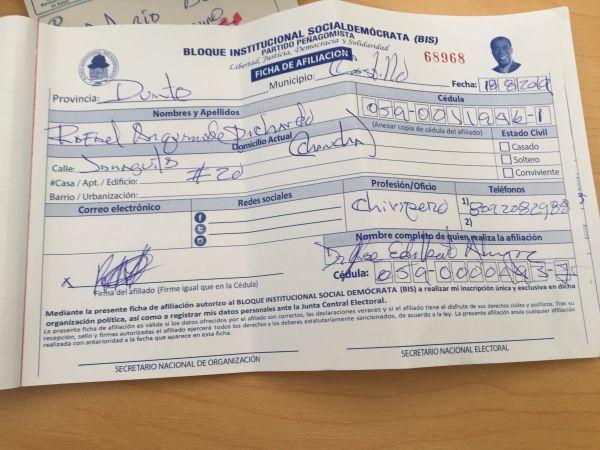 BLOQUE INSTITUCIONAL SOCIALDEMÓCRATA (BIS)
PARTIDO PEÑAGOMISTA
Libertad, Justicia, Democracia y Solidaridad
68968
FICHA DE AFILIACIÓN
Provincia: Duarte
Municipio: Castillo
Fecha:
Nombres y Apellidos
Cédula
Rafael Pichardo
059-0011946-1
(Anexar copia de cédula del afiliado)
Domicilio Actual
Estado Civil
Calle:
Casado
#Casa / Apt. / Edificio: #20
Soltero
Barrio / Urbanización:
Conviviente
Correo electrónico
Redes sociales
Profesión/Oficio
Teléfonos
Chiripero
1) 8092082988
2)
Nombre completo de quien realiza la afiliación
x
Cédula:
Firma del afiliado (Firme igual que en la Cédula)
Mediante la presente ficha de afiliación autorizo al BLOQUE INSTITUCIONAL SOCIAL DEMÓCRATA (BIS) a realizar mi inscripción única y exclusiva en dicha
organización política, así como a registrar mis datos personales ante la Junta Central Electoral.
La presente ficha de afiliación es válida si los datos ofrecidos por el afiliado son correctos, las declaraciones veraces y si el afiliado tiene el disfrute de sus derechos civiles y políticos. Tras su
recepción, sello y firmas autorizadas el afiliado ejercerá todos los derechos y los deberes estatutariamente sancionados, de acuerdo a la ley. La presente afiliación anula cualquier afiliación
realizada con anterioridad a la fecha que aparece en esta ficha.
SECRETARIO NACIONAL DE ORGANIZACIÓN
SECRETARIO NACIONAL ELECTORAL